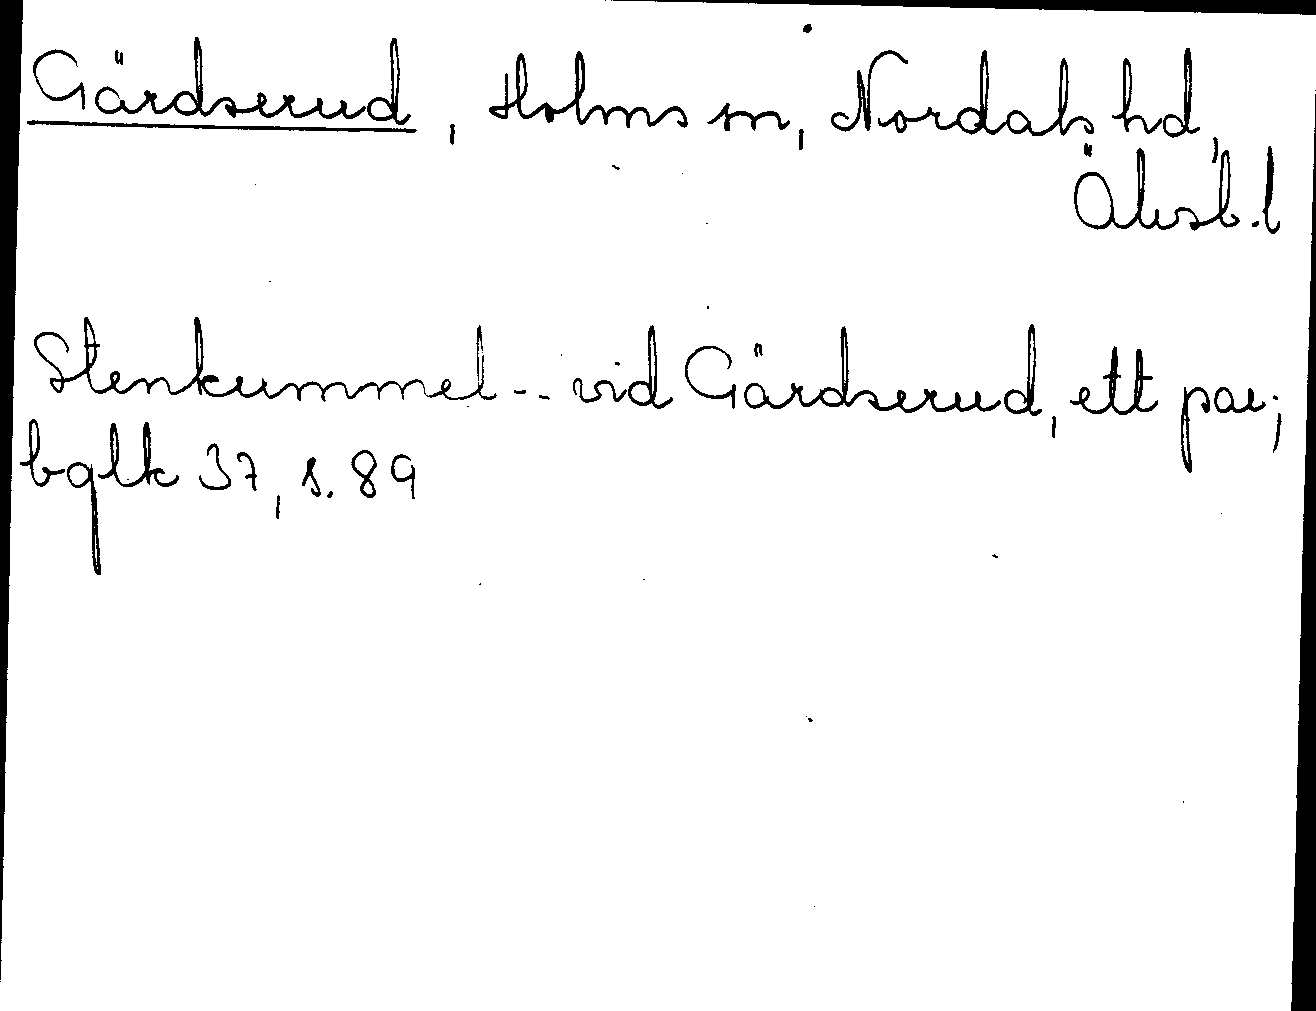 Gärdserud, Holms sn, Nordals hd,
Älvsb.l
Stenkummel -- vid Gärdserud, ett par;
bglk 37, s. 89